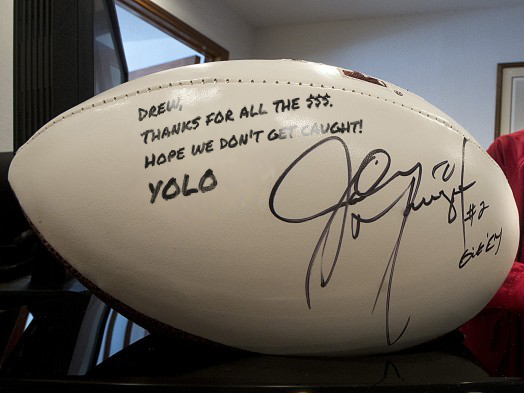 DREW,
THANKS FOR ALL THE $$$.
HOPE WE DON'T GET CAUGHT!
YOLO
#2